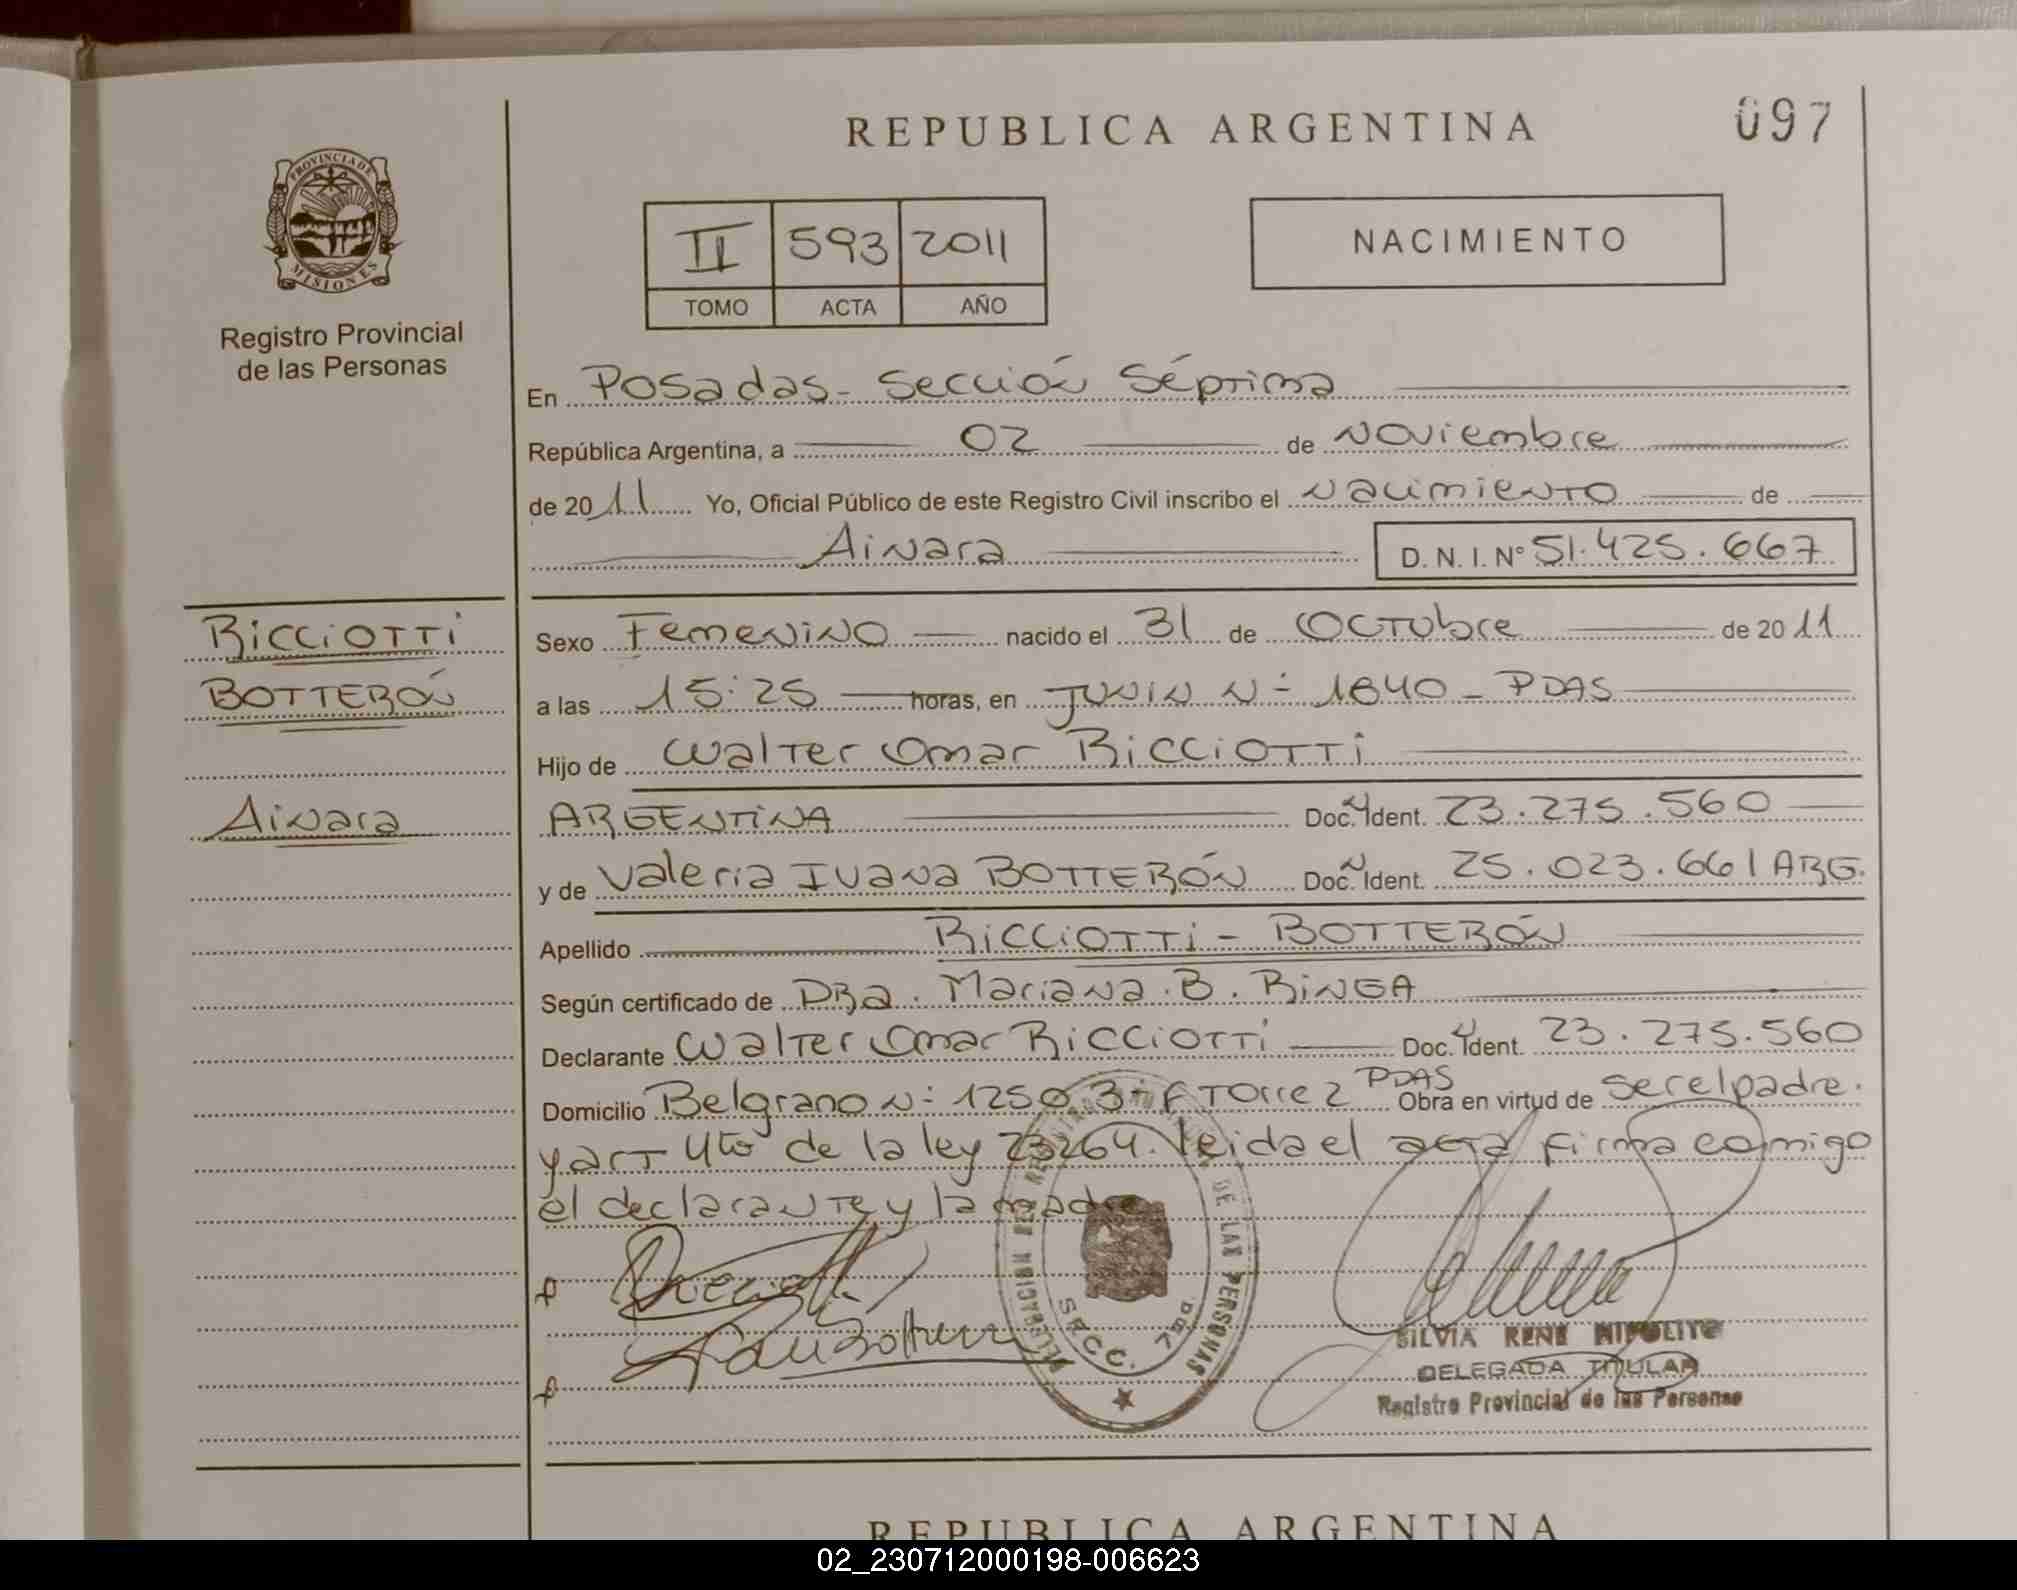 REPUBLICA ARGENTINA
097
PROVINCIA DE
MISIONES
Registro Provincial
de las Personas
II 593 2011
TOMO ACTA AÑO
NACIMIENTO
En Posadas - Sección Séptima
República Argentina, a 02 de Noviembre
de 2011 Yo, Oficial Público de este Registro Civil inscribo el Nacimiento de
Ainara D.N.I. Nº 51.425.667
Ricciotti
Botterón
Ainara
Sexo Femenino nacido el 31 de Octubre de 2011
a las 15:25 horas, en Junin Nº 1840 - PDAS
Hijo de Walter Omar Ricciotti
ARGENTINA Doc. Ident. 23.275.560
y de Valeria Ivana BOTTERÓN Doc. Ident. 25.023.661 ARG.
Apellido Ricciotti - BOTTERÓN
Según certificado de DRa. Mariana. B. RINGA
Declarante Walter Omar Ricciotti Doc. Ident. 23.275.560
Domicilio Belgrano Nº 1250 3º F Torre 2 PDAS Obra en virtud de ser el padre.
y art 4to de la ley 23264. leida el acta firma comigo
el declarante y la madre
DE LAS PERSONAS
S.R.C.C. 7ma
SILVIA RENE HIPOLITO
DELEGADA TITULAR
Registro Provincial de las Personas
REPUBLICA ARGENTINA
02_230712000198-006623